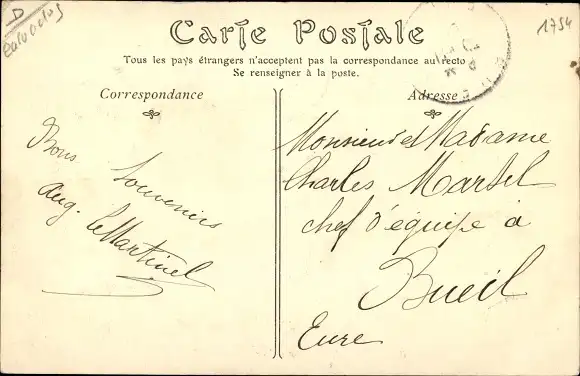 D
Calvados
1754
Carte Postale
Tous les pays étrangers n'acceptent pas la correspondance au recto
Se renseigner à la poste.
Correspondance
Bons Souvenirs
Aug. LeMartinel
Adresse
Monsieur et Madame
Charles Martel
chef d'équipe à
Bueil
Eure